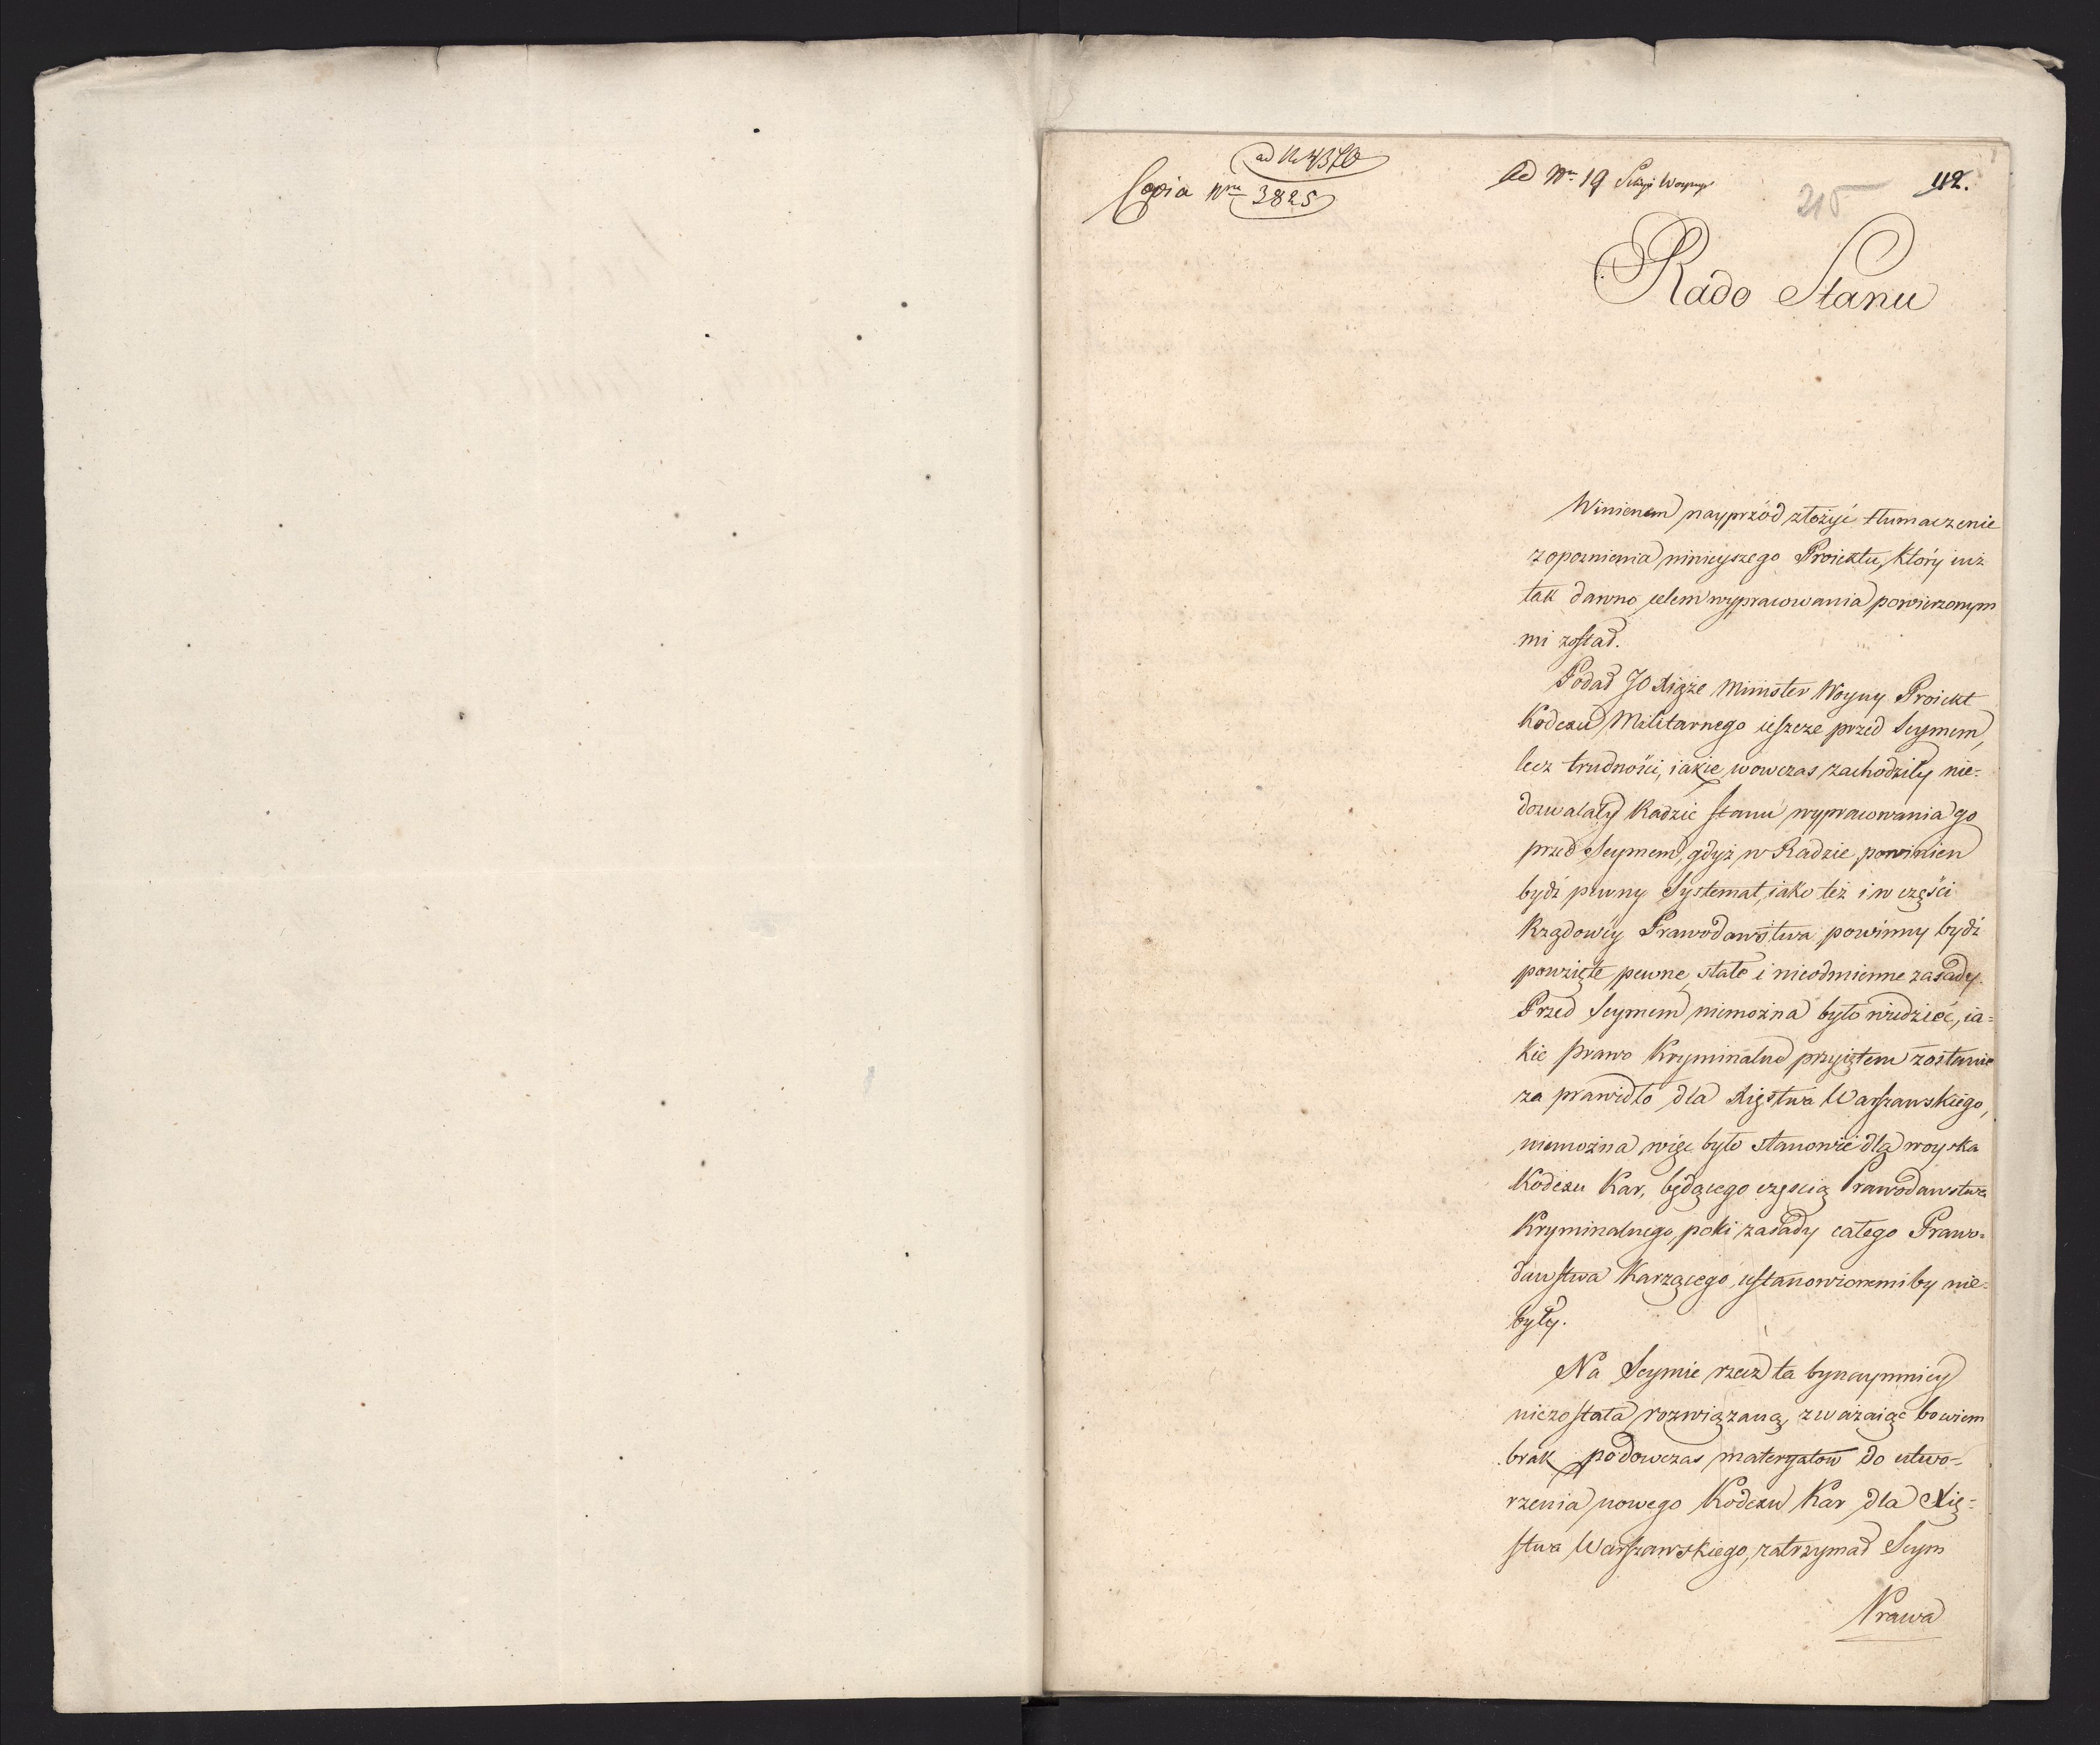 ad Nr 4370
Copia Nru 3825
Ad Nr 19
215
112.
Rado Stanu
Winienem nayprzód złożyć tłumaczenie
zopoznienia ninieyszego Proiektu, który iuż
tak dawno celem wypracowania powierzonym
mi został.
Podał JO Xiąże Minister Woyny Proiekt
Kodexu Militarnego ieszcze przed Seymem,
lecz trudności, iakie wowczas zachodziły nie-
dozwalały Radzie Stanu wypracowania go
przed Seymem, gdyż w Radzie powinien
bydź pewny Systemat, iako też i w części
Rządowéy Prawodawstwa powinny bydź
powzięte pewne, stałe i nieodmienne zasady.
Przed Seymem niemożna było wiedzieć, ia-
kie prawo Kryminalne przyiętem zostanie
za prawidło dla Xięstwa Warszawskiego,
niemożna więc było stanowić dla woyska
Kodexu Kar, będącego częścią Prawodawstwa
Kryminalnego, poki zasady całego Prawo-
dawstwa Karzącego ustanowionemi by nie-
były.
Na Seymie rzecz ta bynaymniey
niezostała rozwiązaną, zważaiąc bowiem
brak podowczas materyałow do utwo-
rzenia nowego Kodexu Kar dla Xię-
stwa Warszawskiego, zatrzymał Seym
Prawa